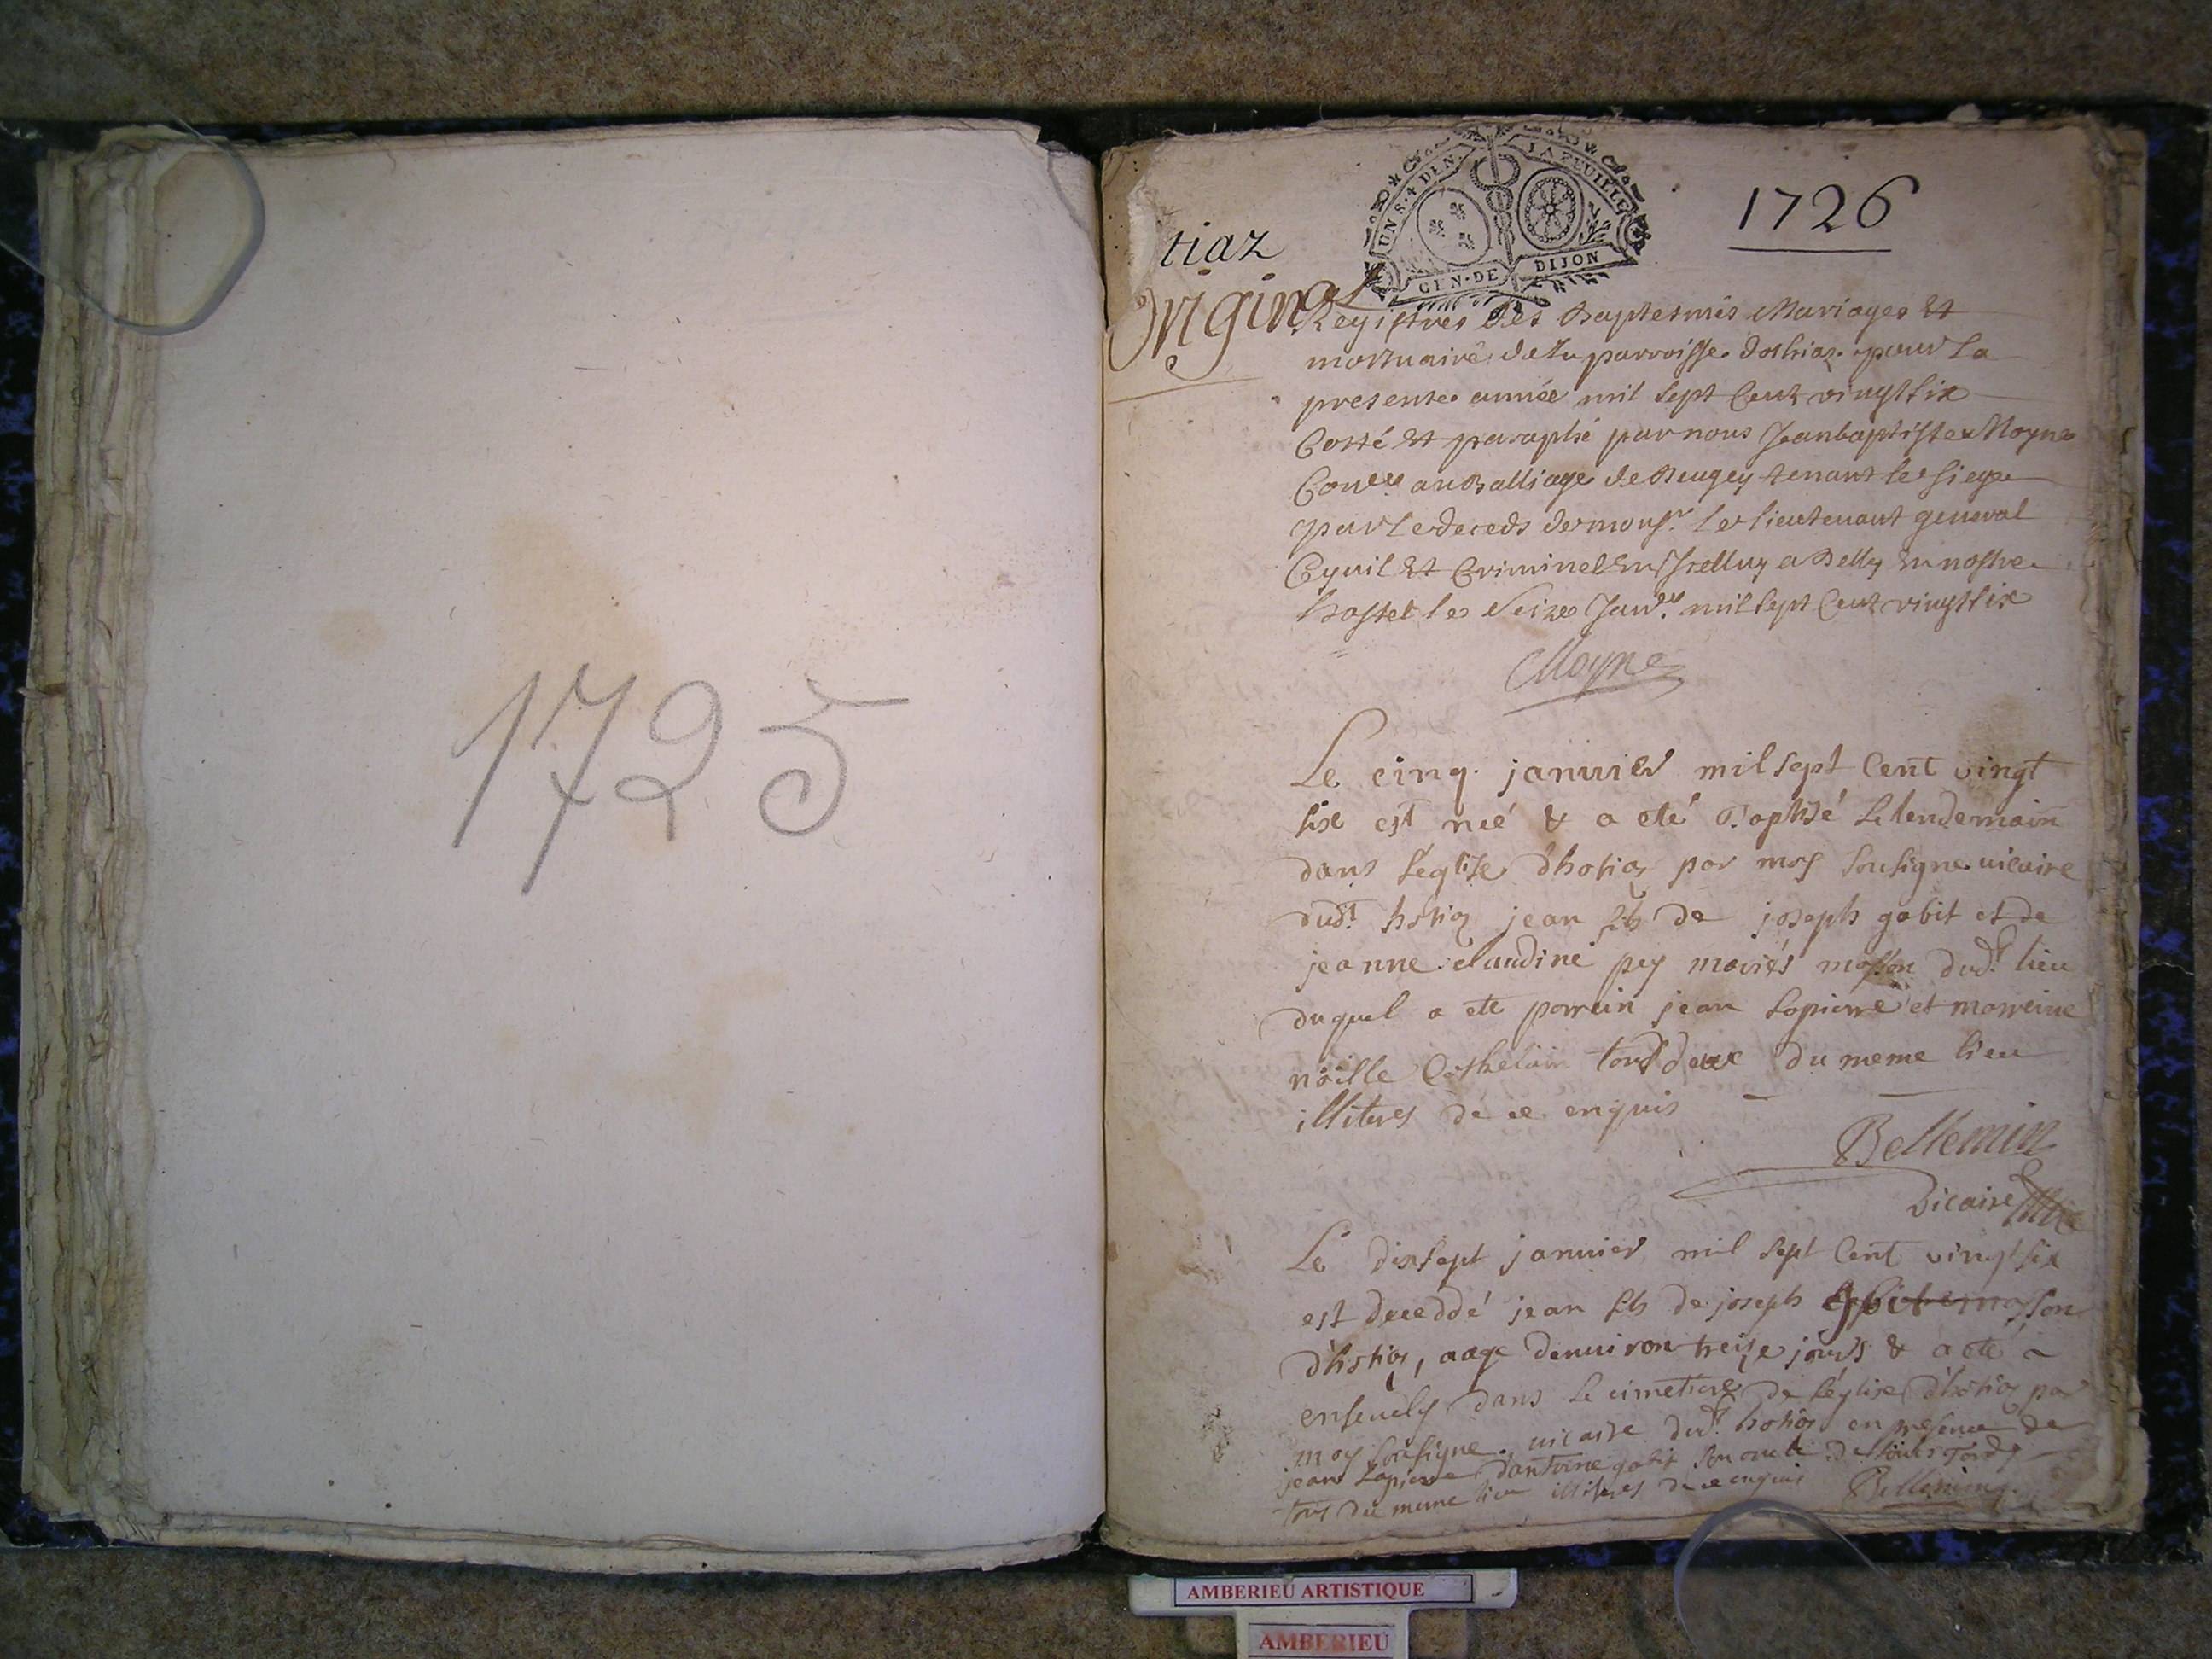 1725
tiaz
UN S. 4 DEN. LA FEUILLE
GEN. DE DIJON
1726
Original
Registres des Baptesmes Mariages Et
mortuaire de la parroisse dostiaz pour La
presente année mil sept Cent vingt six
Cotté Et paraphé par nous Jean baptiste Moyne
Conser au Balliage de Beugey tenant le siege
par le deceds de monsr. Le lieutenant general
Cyuil Et Criminel En Icelluy a Belly En nostre
hostel le seize Janver mil sept Cent vingt six
Moyne
Le cinq januier mil sept Cent vingt
six est neé & a eté Baptisé le lendemain
dans l'eglise d'hotiaz par moy sousigne uicaire
dudt. hotiaz jean fils de joseph gabit et de
jeanne claudine pey mariés masson dudt. lieu
duquel a ete parrein jean Lapierre et marreine
tous deux du meme lieu
illiteres de ce enquis
Bellemin
Vicaire
Le dixsept januier mil sept Cent vingt six
est deceddé jean fils de joseph gabit masson
d'hotiaz, aagé denuiron treise jours & a eté
enseuely dans le cimetiere de l'église d'hotiaz par
moy sousigne uicaire dudt. hotiaz en presence de
jean Lapierre d'antoine gabit son oncle de
tous du meme lieu illiteres de ce enquis Bellemin
AMBERIEU ARTISTIQUE
AMBERIEU